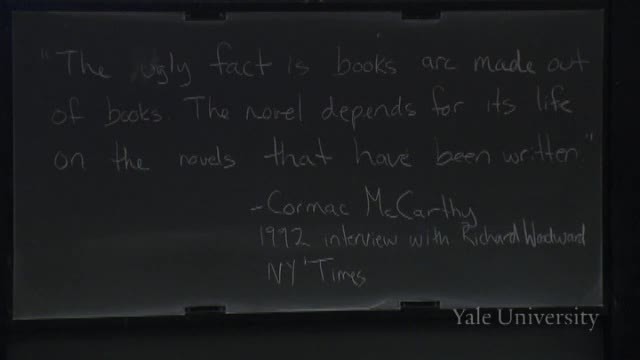 "The ugly fact is books are made out
of books. The novel depends for its life
on the novels that have been written"
-Cormac McCarthy
1992 interview with Richard Woodward
NY Times
Yale University